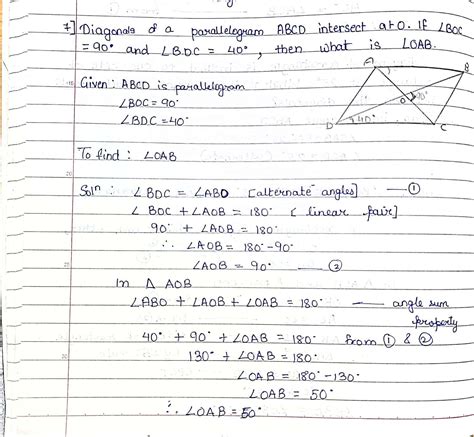 7] Diagonals of a parallelogram ABCD intersect at O. If ∠BOC
= 90° and ∠BDC = 40°, then what is ∠OAB.
Given : ABCD is parallelogram
∠BOC = 90°
∠BDC = 40°
A
B
O
90°
D
40°
C
To find : ∠OAB
Solⁿ : ∠BDC = ∠ABD [alternate angles] — ①
∠BOC + ∠AOB = 180° [linear pair]
90° + ∠AOB = 180°
∴ ∠AOB = 180° - 90°
∠AOB = 90° — ②
In △ AOB
∠ABO + ∠AOB + ∠OAB = 180° — angle sum
property
40° + 90° + ∠OAB = 180° from ① & ②
130° + ∠OAB = 180°
∠OAB = 180° - 130°
∠OAB = 50°
∴ ∠OAB = 50°